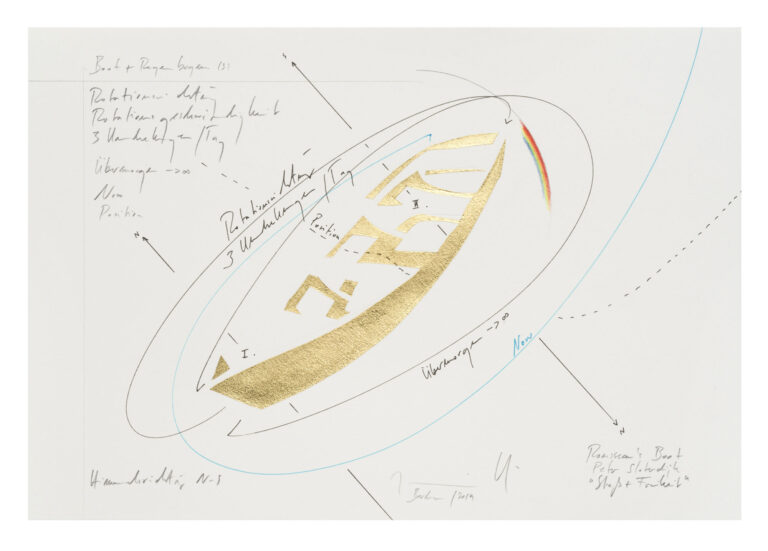 Boot + Regenbogen (3)
Rotationsrichtung
Rotationsgeschwindigkeit
3 Umdrehungen/Tag
Übermorgen → ∞
Now
Position
N
Rotationsrichtung
3 Umdrehungen/Tag
Position
II.
I.
Übermorgen → ∞
Now
N
Himmelsrichtung N-S
Berlin /2019
Rousseau's Boot
Peter Sloterdijk
"Streß + Freiheit"